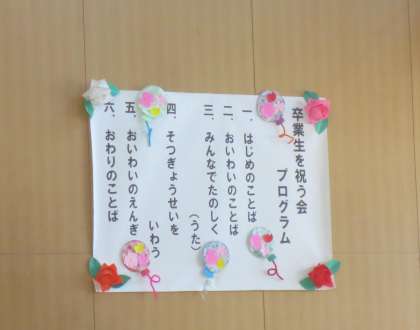 卒業生を祝う会
プログラム
一．はじめのことば
二．おいわいのことば
三．みんなでたのしく
（うた）
四．そつぎょうせいを
いわう
五．おいわいのえんぎ
六．おわりのことば